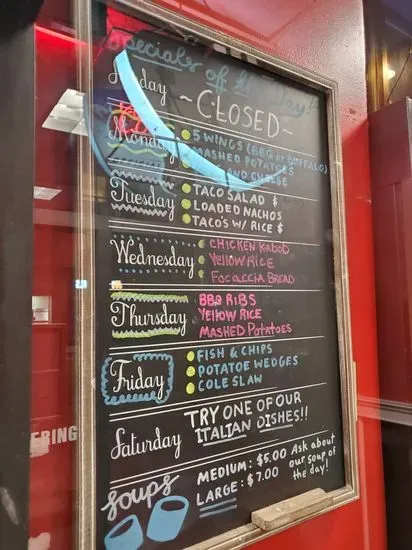 Specials of the Day!
Sunday ~CLOSED~
Monday
5 WINGS (BBQ or BUFFALO)
MASHED POTATOES
AND CHEESE
Tuesday
TACO SALAD $
LOADED NACHOS
TACO'S W/ RICE $
Wednesday
CHICKEN KABOB
YELLOW RICE
FOCACCIA BREAD
Thursday
BBQ RIBS
YELLOW RICE
MASHED POTATOES
Friday
FISH & CHIPS
POTATOE WEDGES
COLE SLAW
Saturday
TRY ONE OF OUR
ITALIAN DISHES!!
Soups
MEDIUM: $5.00
LARGE: $7.00
Ask about
our soup of
the day!
ERING